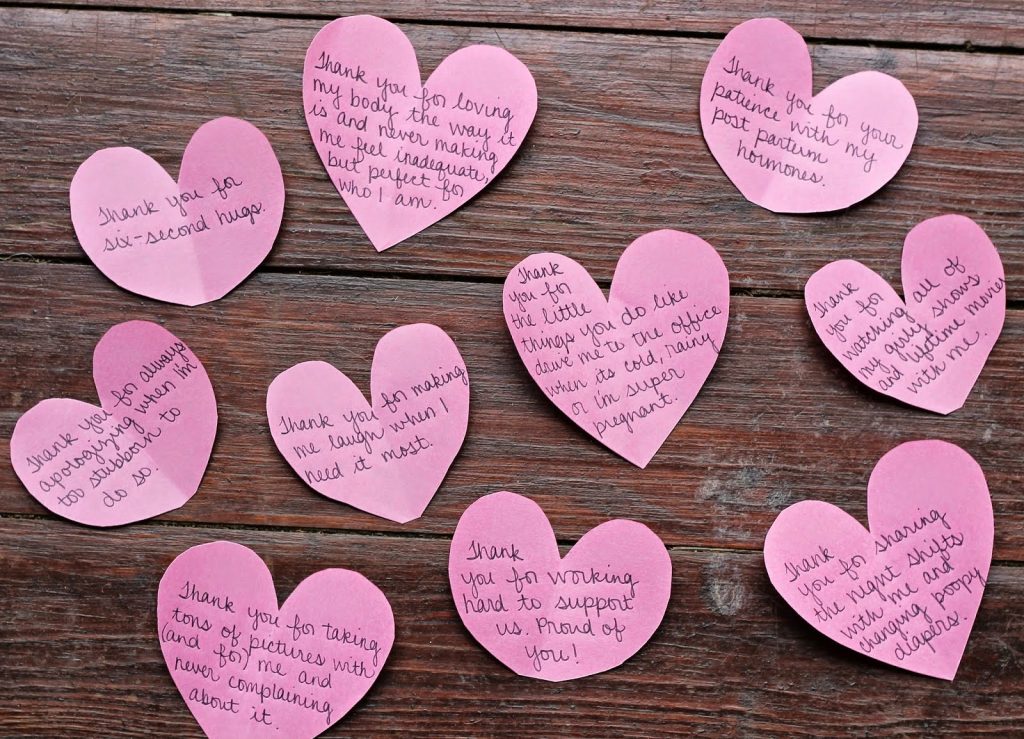 Thank you for loving
my body the way it
is and never making
me feel inadequate,
but perfect for
who I am.
Thank you for your
patience with my
post partum
hormones.
Thank you for
six-second hugs.
Thank
you for
the little
things you do like
drive me to the office
when its cold, rainy
or i'm super
pregnant.
Thank
you for
watching all of
my girly shows
and lifetime movies
with me.
Thank you for always
apologizing when I'm
too stubborn to
do so.
Thank you for making
me laugh when I
need it most.
Thank
you for sharing
the night shifts
with me and
changing poopy
diapers.
Thank
you for working
hard to support
us. Proud of
you!
Thank you for taking
tons of pictures with
(and for) me and
never complaining
about it.